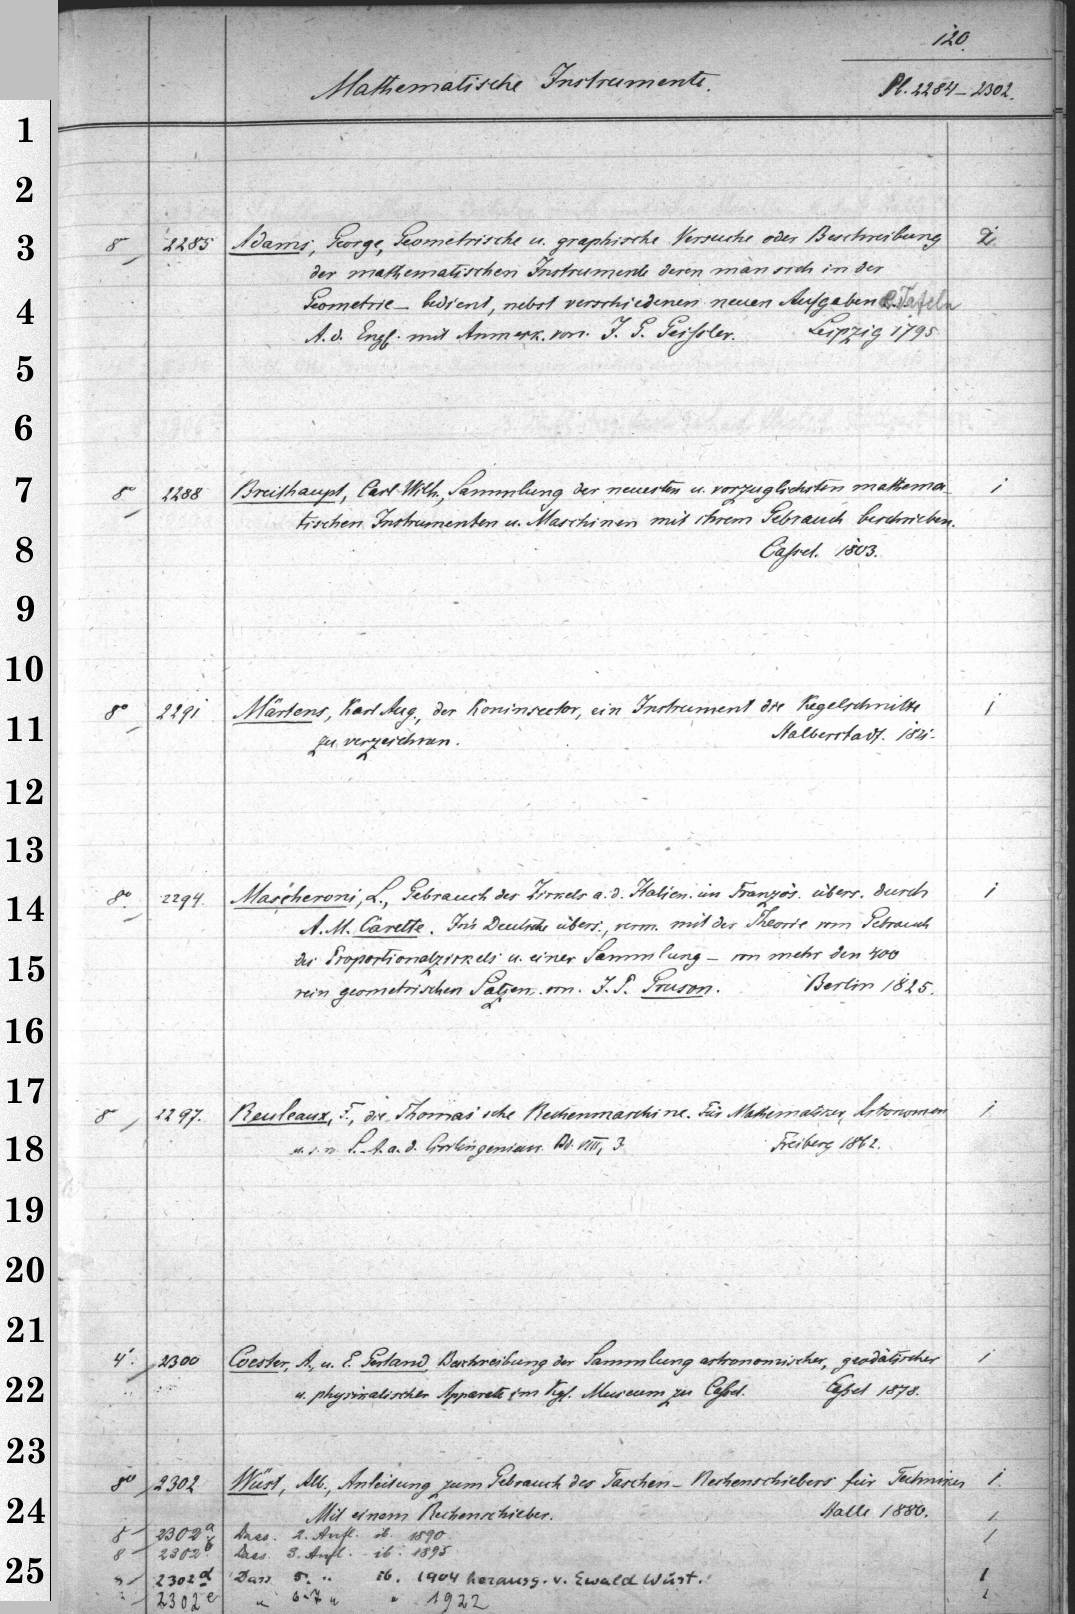 120.
Mathematische Instrumente.
Pl. 2284–2302.
1
2
3
4
5
6
7
8
9
10
11
12
13
14
15
16
17
18
19
20
21
22
23
24
25
8° 2285 Adams, George, Geometrische u. graphische Versuche oder Beschreibung 2
der mathematischen Instrumente deren man sich in der
Geometrie bedient, nebst verschiedenen neuen Aufgaben Tafeln
A. d. Engl. mit Anmerk. von J. G. Geissler. Leipzig 1795
8° 2288 Breithaupt, Carl Wilh., Sammlung der neuesten u. vorzüglichsten mathema- 1
tischen Instrumenten u. Maschinen mit ihrem Gebrauch beschrieben.
Cassel. 1803.
8° 2291 Märtens, Karl Aug., der Koninsector, ein Instrument die Kegelschnitte 1
zu verzeichnen. Halberstadt.
8° 2294. Mascheroni, L., Gebrauch des Zirkels a. d. Italien. im Französ. übers. durch 1
A. M. Carette. Ins Deutsche übers., verm. mit der Theorie vom Gebrauch
des Proportionalzirkels u. einer Sammlung – von mehr den 400
rein geometrischen Sätzen. von. J. P. Gruson. Berlin 1825.
8° 2297. Reuleaux, F., die Thomas'sche Rechenmaschine. Für Mathematiker, Astronomen 1
u. s. w. S.-A. a. d. Civilingenieur Bd. VIII, 3 Freiberg 1862.
4°. 2300 Coester, A., u. E. Gerland, Beschreibung der Sammlung astronomischer, geodätischer 1
u. physikalischer Apparate im Kgl. Museum zu Cassel. Cassel 1878.
8° 2302 Wüst, Alb., Anleitung zum Gebrauch des Taschen-Rechenschiebers für Techniker 1.
Mit einem Rechenschieber. Halle 1880. 1
8 2302a Dass. 2. Aufl. ib. 1890. 1
8 2302b Dass. 3. Aufl. ib. 1895
2302d Dass 5. " ib. 1904 herausg. v. Ewald Wüst. 1
2302e " 6-7 " " 1922 1